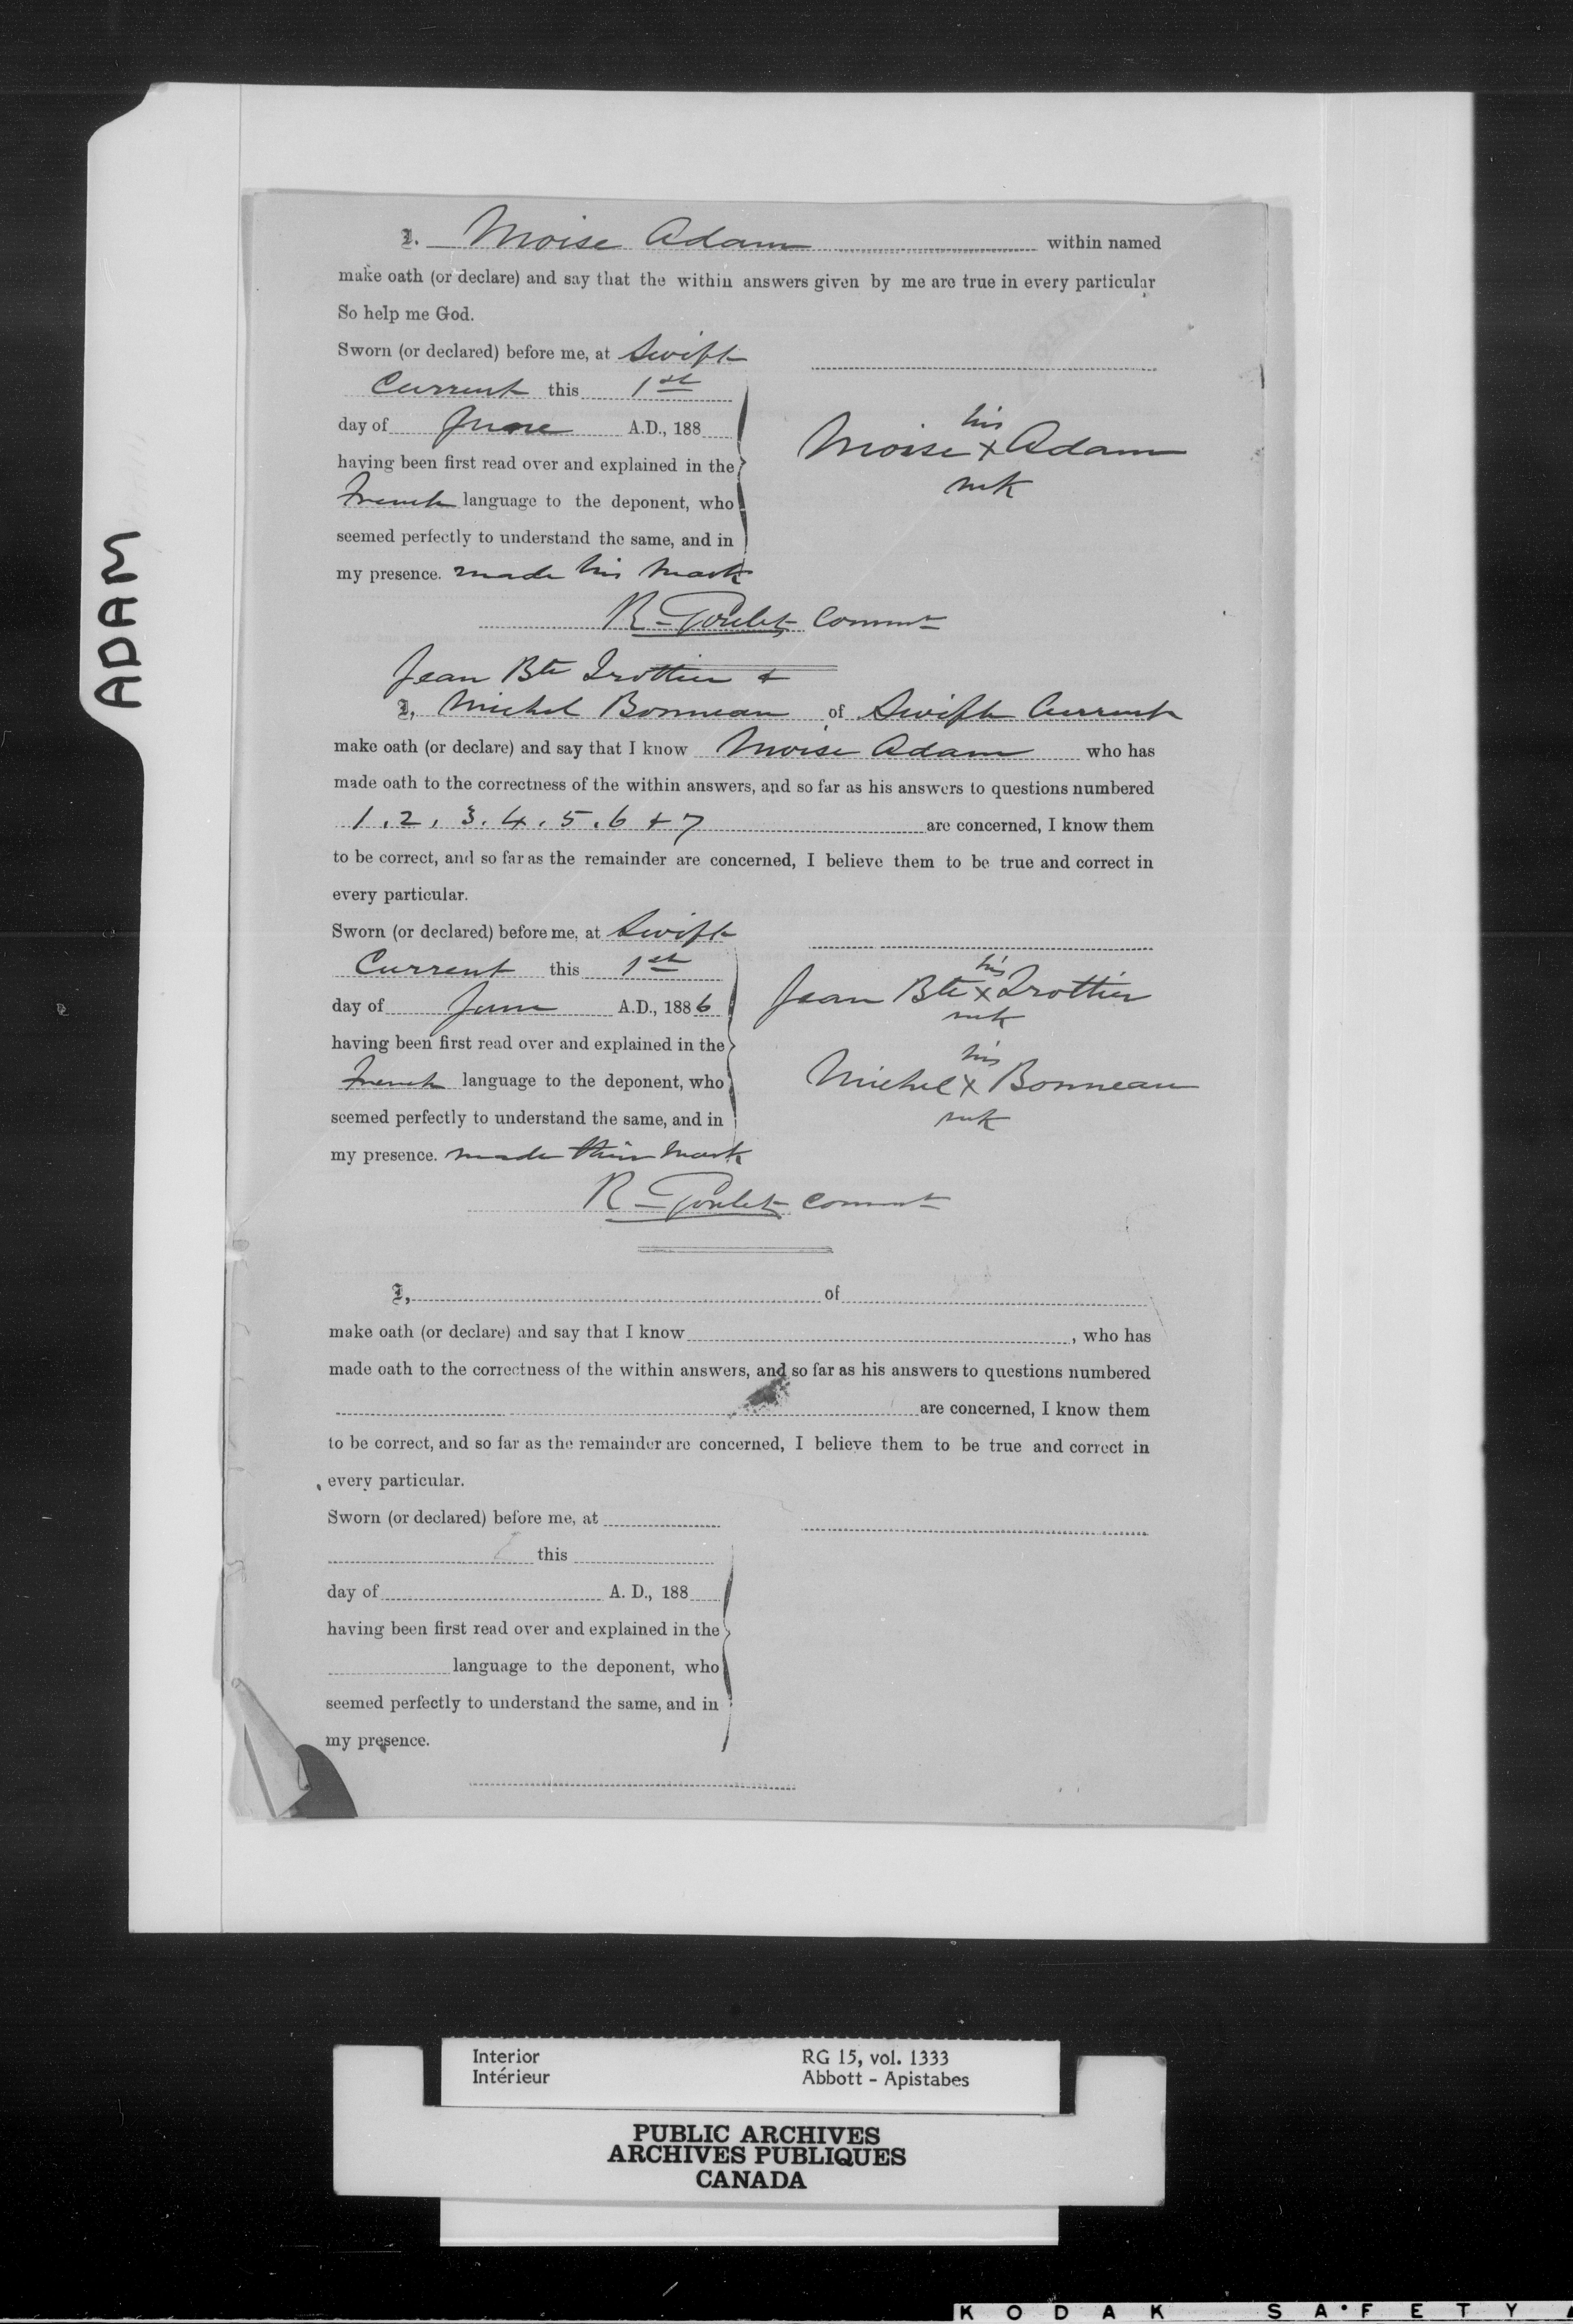 ADAM
I, Moise Adam within named
make oath (or declare) and say that the within answers given by me are true in every particular
So help me God.
Sworn (or declared) before me, at Swift
Current this 1st
day of June A.D., 188
having been first read over and explained in the
French language to the deponent, who
seemed perfectly to understand the same, and in
my presence. made his mark
his
Moise x Adam
mk
R. Goulet Commr
Jean Bte Trottier &
I, Michel Bonneau of Swift Current
make oath (or declare) and say that I know Moise Adam who has
made oath to the correctness of the within answers, and so far as his answers to questions numbered
1, 2, 3, 4, 5, 6 & 7 are concerned, I know them
to be correct, and so far as the remainder are concerned, I believe them to be true and correct in
every particular.
Sworn (or declared) before me, at Swift
Current this 1st
day of June A.D., 1886
having been first read over and explained in the
French language to the deponent, who
seemed perfectly to understand the same, and in
my presence. made their mark
his
Jean Bte x Trottier
mk
his
Michel x Bonneau
mk
R. Goulet Commr
I, of
make oath (or declare) and say that I know , who has
made oath to the correctness of the within answers, and so far as his answers to questions numbered
are concerned, I know them
to be correct, and so far as the remainder are concerned, I believe them to be true and correct in
every particular.
Sworn (or declared) before me, at
this
day of A. D., 188
having been first read over and explained in the
language to the deponent, who
seemed perfectly to understand the same, and in
my presence.
Interior RG 15, vol. 1333
Intérieur Abbott - Apistabes
PUBLIC ARCHIVES
ARCHIVES PUBLIQUES
CANADA
KODAK SAFETY